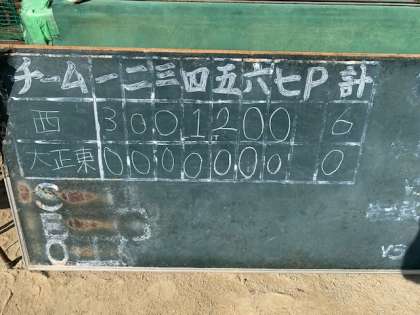 チーム 一 二 三 四 五 六 七 P 計
西 3 0 0 1 2 0 0 0
大正東 0 0 0 0 0 0 0 0